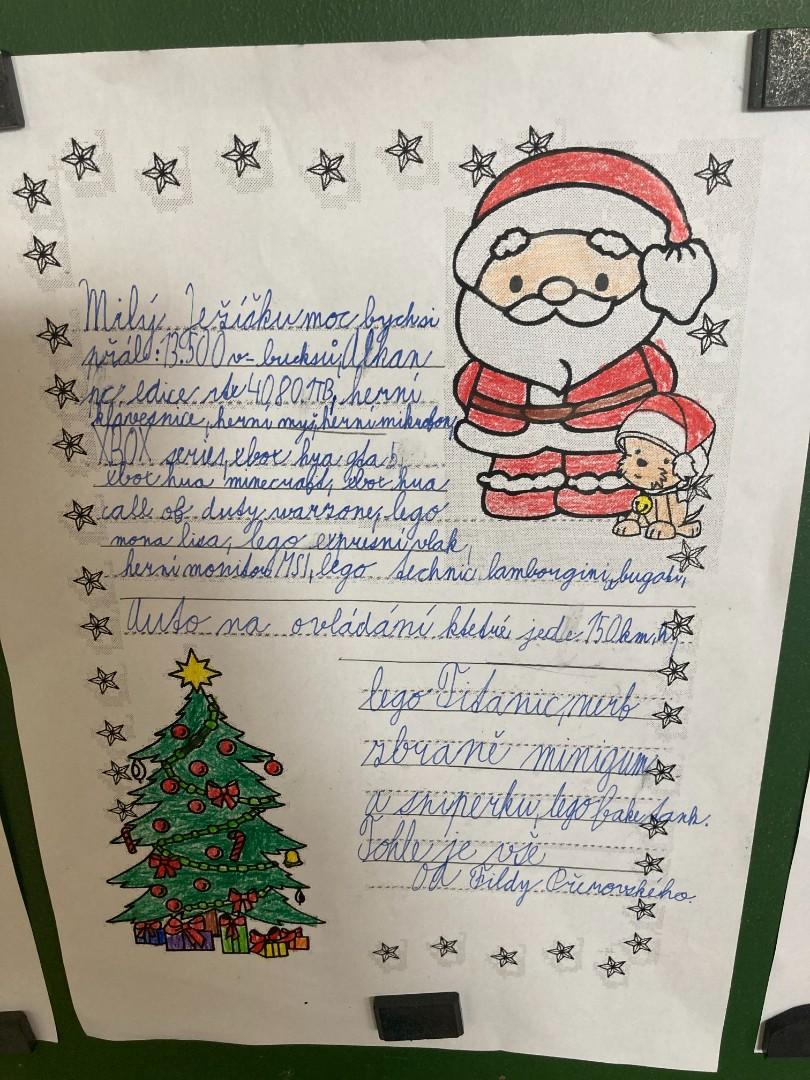 Milý Ježíšku moc bych si
přál: 13.500 v-bucksů, Alhan
pc edice rtx 4080 TB, herní
klávesnice, herní myš, herní mikrofon,
XBOX series, xbox hya gta 5,
xbox hua minecraft, xbox hua
call of duty warzone, lego
mona lisa, lego expresní vlak,
herní monitor MSI, lego technic lamborgini, bugati,
Auto na ovládání kteté jede 150km,h,
lego Titanic, nerf
zbraně minigum
a sniperku, lego fake tank.
Tohle je vše
Od Fildy